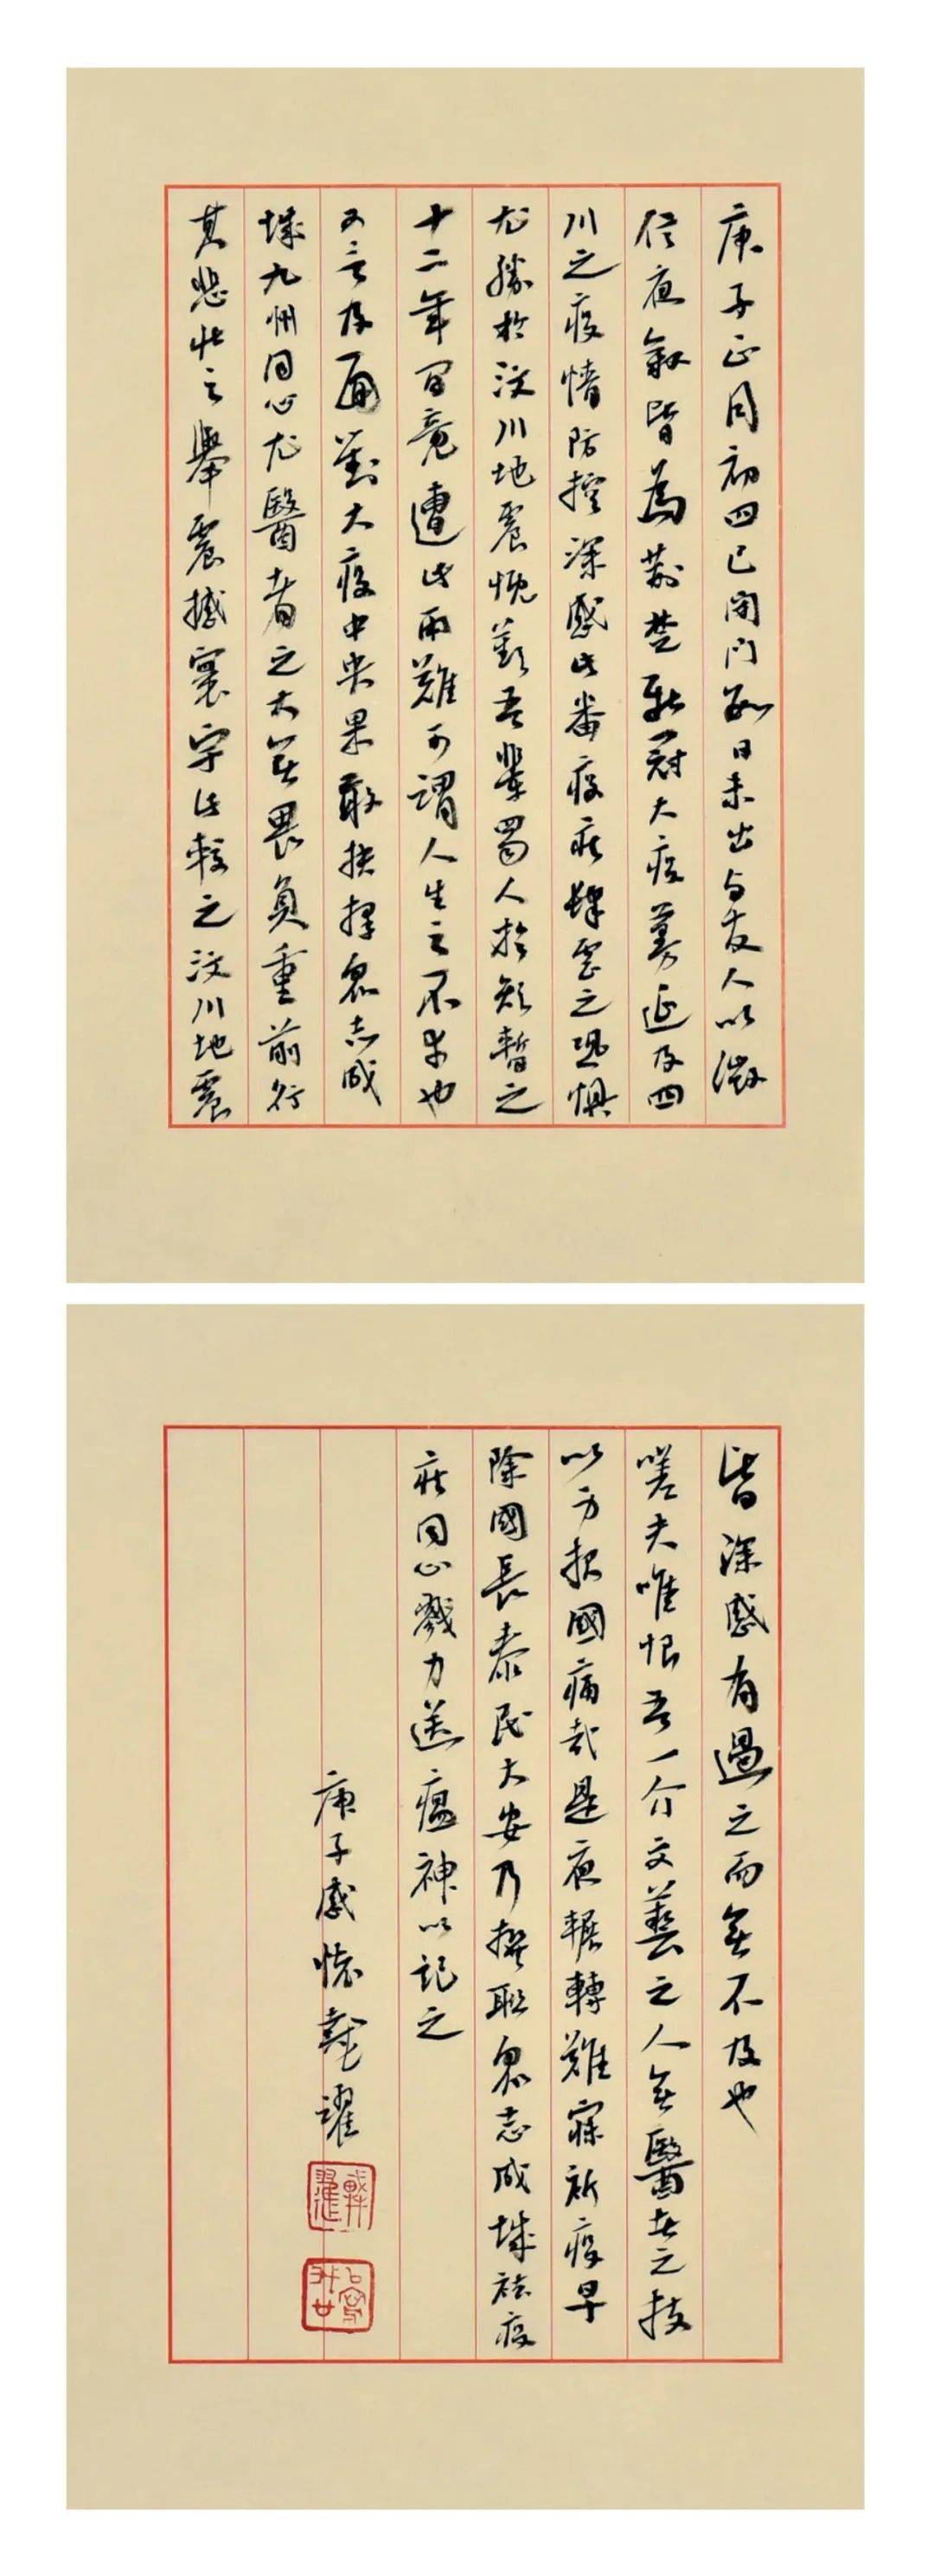 庚子正月初四已閉門數日未出与友人以微
信夜敘皆為荊楚新冠大疫蔓延及四
川之疫情防控深感此番疫症肆虐之恐懼
尤勝於汶川地震慨嘆吾輩蜀人於短暫之
十二年間竟遭此兩難可謂人生之不幸也
又言及面對大疫中央果敢抉擇眾志成
城九州同心尤醫者之大無畏負重前行
其悲壯之舉震撼寰宇此較之汶川地震
皆深感有過之而無不及也
嗟夫唯恨吾一介文藝之人無醫者之技
以力報國痛哉是夜輾轉難寐祈疫早
除國長泰民大安乃撰联眾志成城祛疫
症同心戮力送瘟神以記之
庚子感懷龔耀